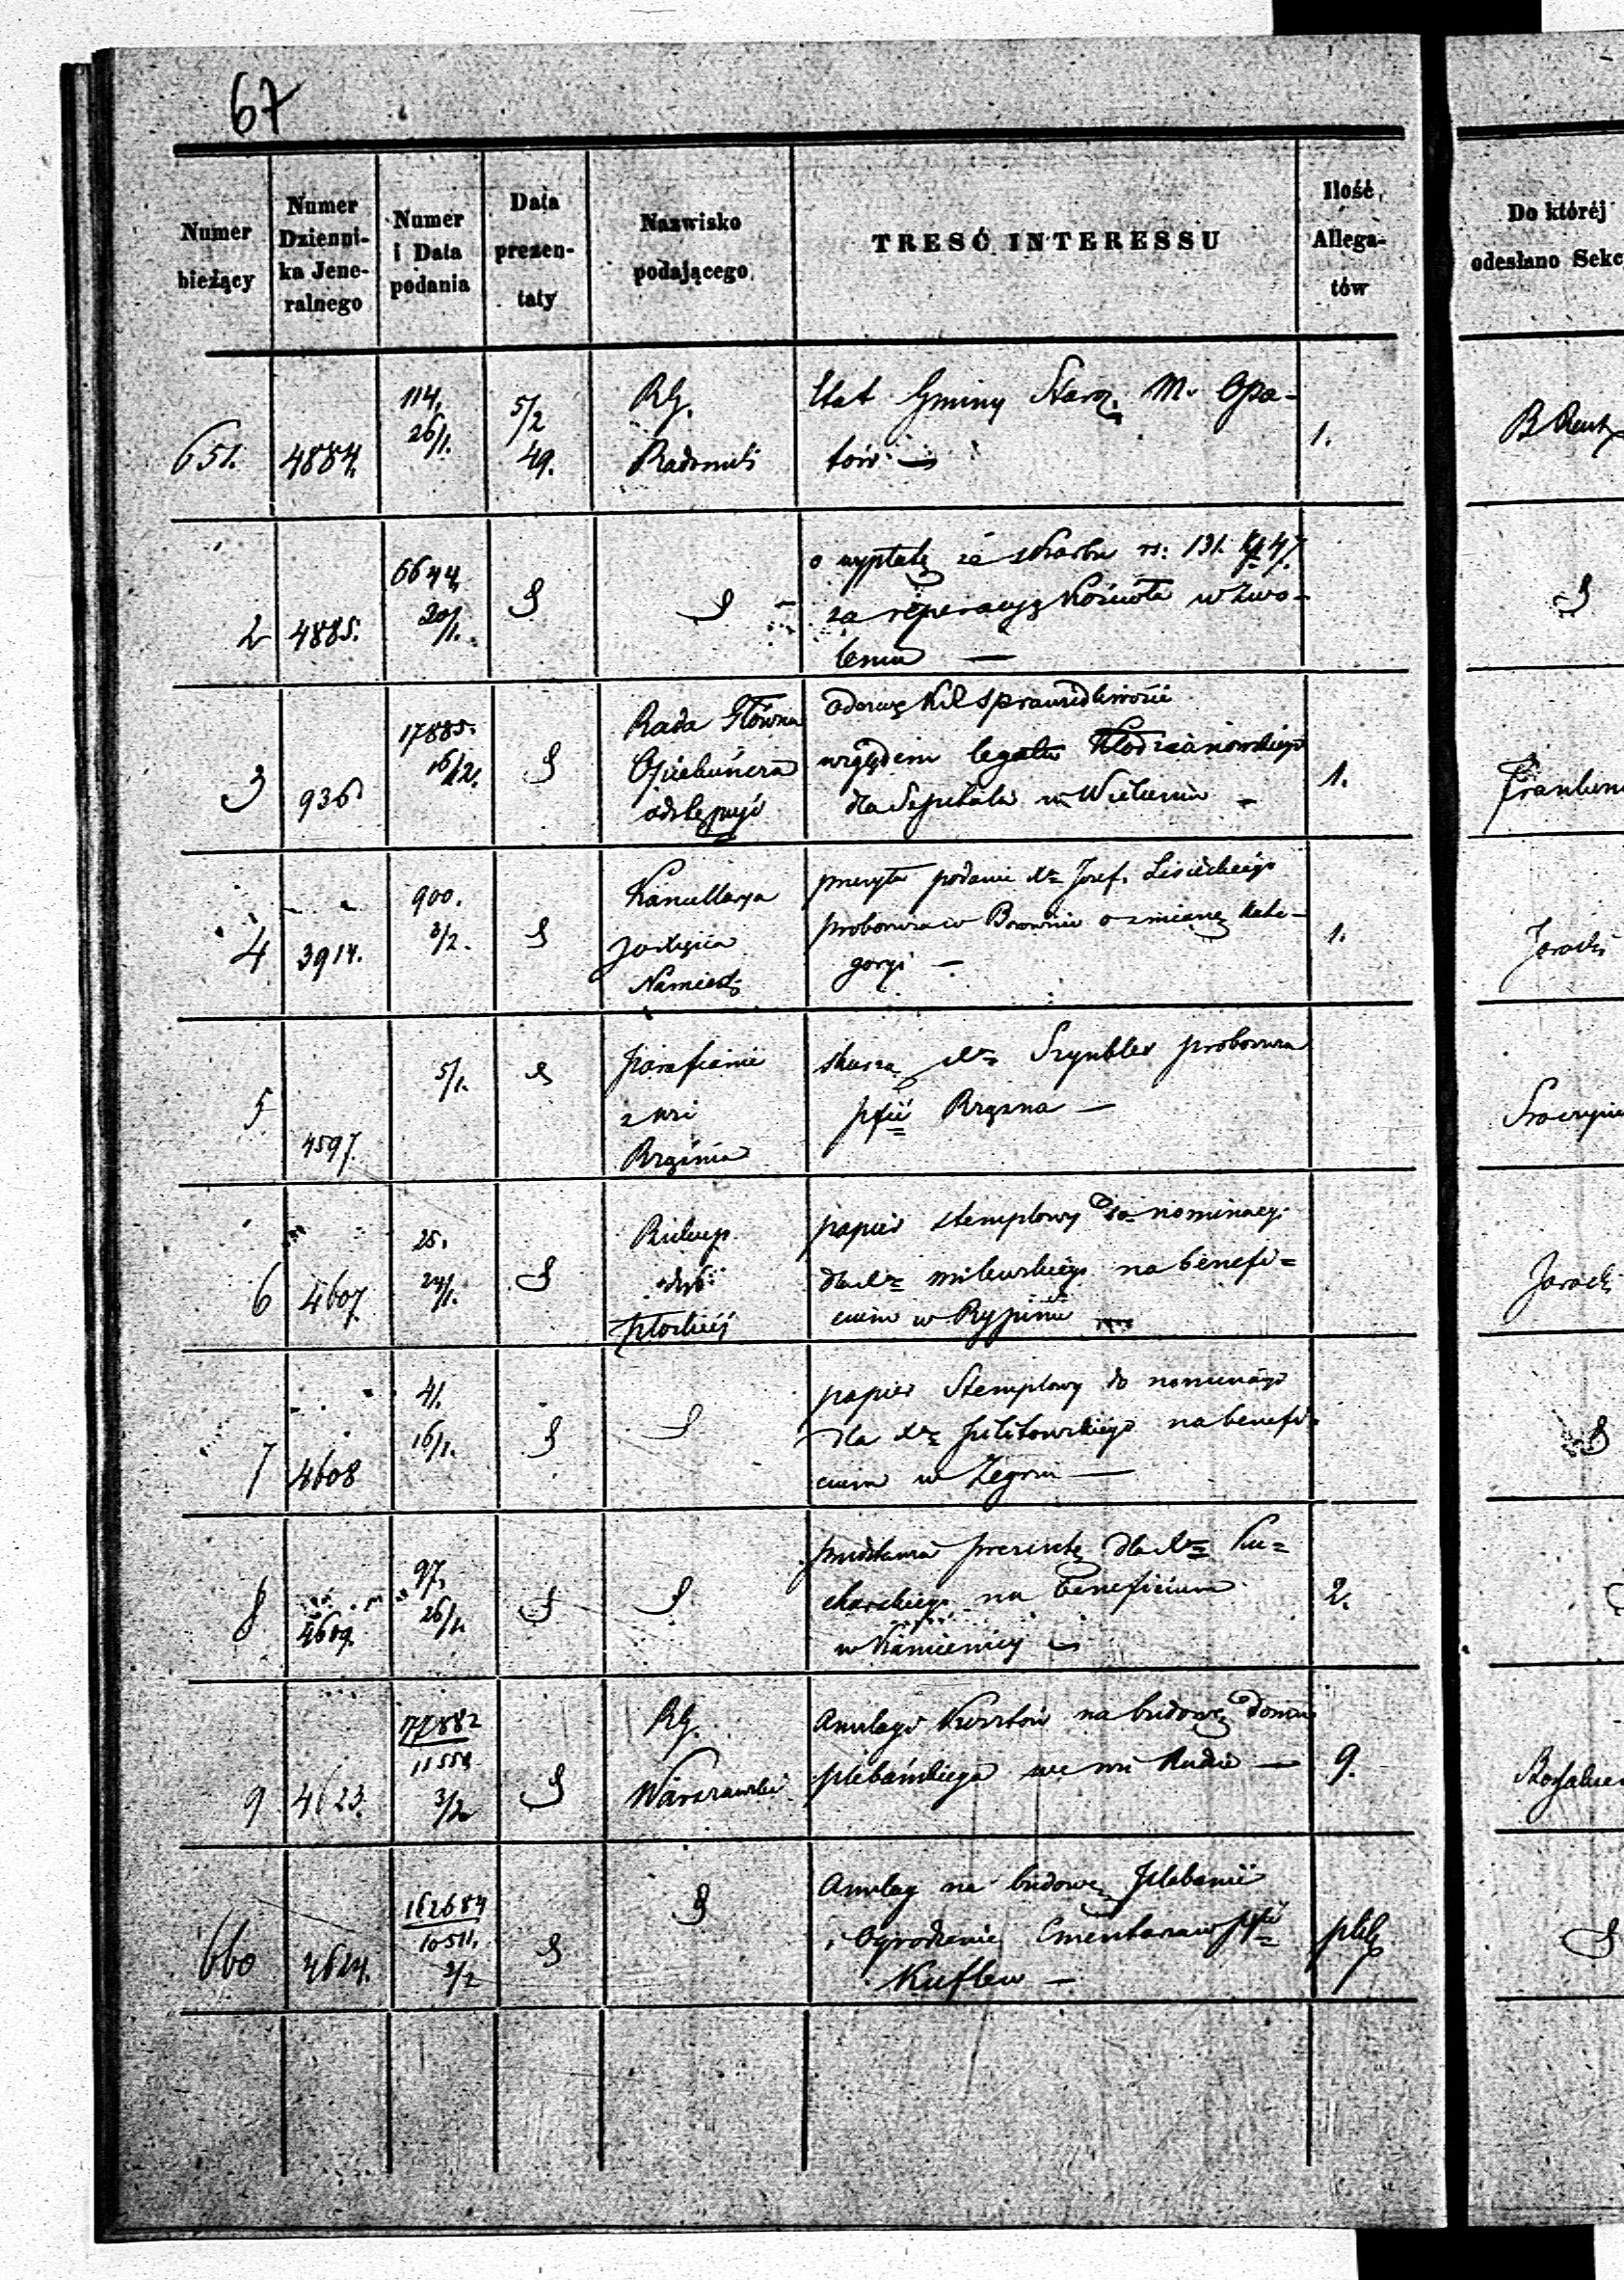 67
Numer bieżący
Numer Dzienni-ka Jene-ralnego
Numer i Data podania
Data prezen-taty
Nazwisko podającego
TRESĆ INTERESSU
Ilość Allega-tów
Do któréj odesłano Sekc
651. 4884. 114. 26/1. 5/2 49. RG. Radomski
Etat Gminy Staroz. M. Opa-
tów — 1.
2 4885. 6644 20/1.
o wypłatę ze skarbu rs: 131 k. 47
za reperacyę kościoła w Zwo-
leniu —
3 936 17885. 16/12. Rada Główna
Opiekuńcza
odezwę sprawiedliwości
względem legatu
dla Szpitala w Wieluniu — 1.
4 3914. 900. 3/2. Kancellarya
Xięcia
Namiest.
podanie Xa Józef. Lisieckiego
proboszcza w o zmianę kate-
goryi — 1.
Jaracki
5 4597. 5/1. parafianie
z wsi
skarżą Xa Szynbler proboszcza
pfii —
6 4607. 25. 24/1. Biskup
płockiéj
papier stemplowy do nominacyi
dla Xa Milewskiego na benefi=
cium w Rypinie
7 4608 41. 16/1.
papier Stemplowy do nominacyi
dla Xa na benefi-
cium w —
8 4609. 97. 26/1.
przedstawia prezentę dla Xa Ku=
charskiego na beneficium
w Kamienicy — 2.
9 4623. 77882 11558 3/2 RG.
Warszawski
Anszlag kosztów na budowę domu
plebańskiego we wsi Rudzie — 9.
660 4624. 162684 10511. 3/2
Anszlag na budowę Plebanii
i Ogrodzenie Cmentarza w pfii
Kuflew — plik